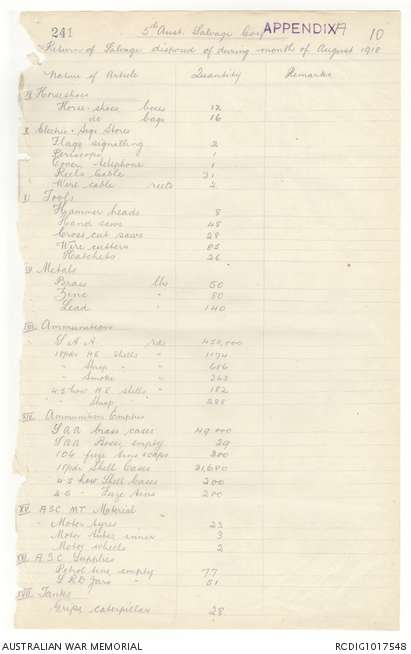 241 5th Aust. Salvage Coy APPENDIX 10
Return of Salvage disposed of during month of August 1918
Nature of Article Quantity Remarks
IX Horseshoes
Horse-shoes boxes 12
do bags 16
X Electric & Sigs Stores
Flags signalling 2
Periscope 1
Cover telephone 1
Reels Cable 31
Wire cable reels 2
XI Tools
Hammer heads 8
Hand saws 45
Cross cut saws 28
Wire cutters 85
Hatchets 26
Metals
Brass lbs 50
Zinc " 80
Lead " 140
XIII Ammunition
S.A.A. rds 450,000
18pdr H.E. Shells " 1174
" Shrap " " 686
" Smoke " 263
4.5 how H.E. shells " 182
" Shrap " " 285
XIV Ammunition Empties
SAA brass cases 49,000
SAA Boxes empty 29
106 fuze tins & caps 300
18pdr Shell Cases 21,680
4.5 how Shell Cases 200
4.5 " Fuze tins 200
XV ASC MT Material
Motor tyres 23
Motor tubes inner 3
Motor wheels 2
XVI A.S.C. Supplies
Petrol tins empty 77
S.R.D. Jars " 51
XVII Tanks
Grips caterpillar 28
AUSTRALIAN WAR MEMORIAL RCDIG1017548